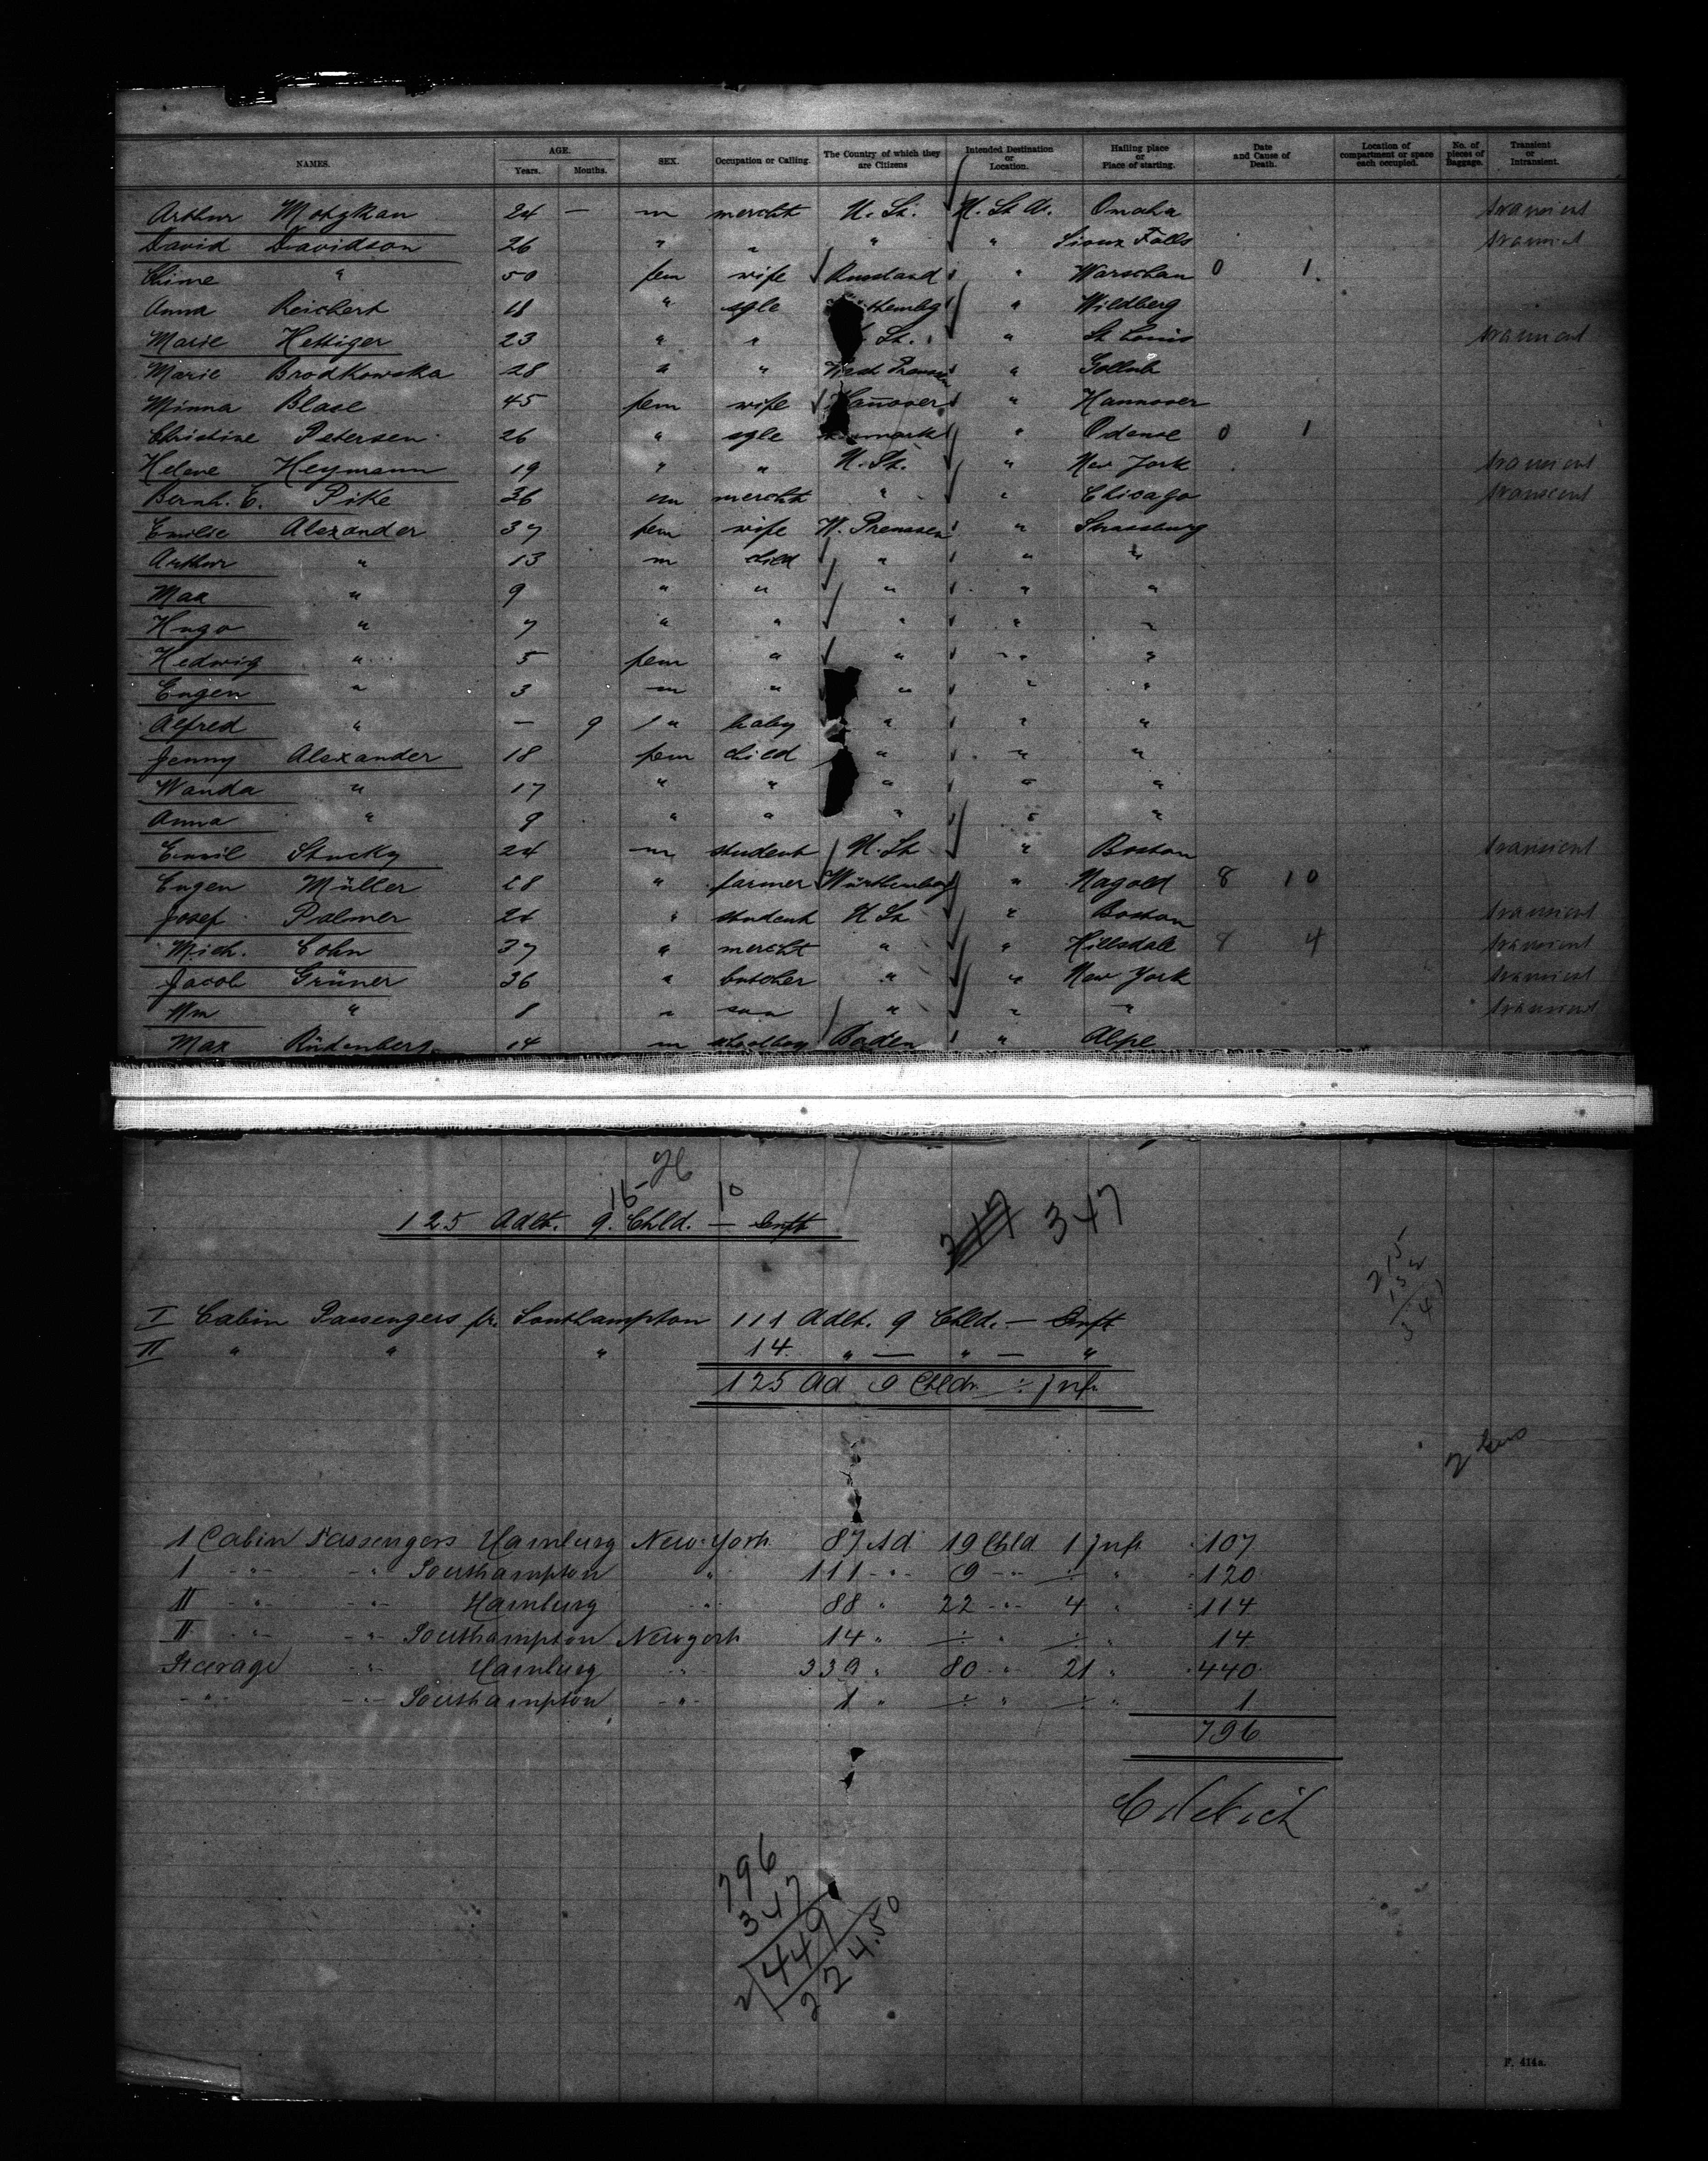 NAMES. AGE. Years. Months. SEX. Occupation or Calling. The Country of which they are Citizens Intended Destination or Location. Hailing place or Place of starting. Date and Cause of Death. Location of compartment or space each occupied. No. of pieces of Baggage. Transient or Intransient.
Arthur 24 — m mercht U. St. U. St. A. Omaha transient
David Davidson 26 " " " " Sioux Falls transient
Chime " 50 fem wife Russland " Warschau 0 1
Anna Reichert 18 " sgle " Wildberg
Marie Hettiger 23 " " St. " St Louis transient
Marie Brodkowska 28 " " West Preussen " Gollub
Minna Blase 45 fem wife Hannover " Hannover
Christine Petersen 26 " sgle " Odense 0 1
Helene Heymann 19 " " U. St. " New York transient
Bernh. E. Pike 36 m mercht " " Chicago transient
Emilie Alexander 37 fem wife W. Preussen " Strassburg
Arthur " 13 m child " " "
Max " 9 " " " " "
Hugo " 7 " " " " "
Hedwig " 5 fem " " " "
Eugen " 3 m " " " "
Alfred " — 9 " baby " " "
Jenny Alexander 18 fem child " " "
Wanda " 17 " " " " "
Anna " 9 " " " " "
Emil Stucky 24 m student U. St " Boston transient
Eugen Müller 28 " farmer Württemberg " Nagold 8 10
Josef Palmer 24 " student U St " Boston transient
Mich. Cohn 37 " mercht " " Hillsdale 8 4 transient
Jacob Grüner 36 " butcher " " New York transient
Wm " 8 " son " " " transient
Max Rüdenberg 14 m schoolboy Baden " Alpe
16 – 26 10
125 Adlt. 9. Chld. — Inft
217 347
215
132
347
I Cabin Passengers fr. Southampton 111 Adlt. 9 Chld. — Inft
II " " " 14. " — " — "
125 Ad 9 Chldr ÷ Inf.
1 Cabin Passengers Hamburg New-York 87 Ad 19 Chld 1 Inf. 107
1 -"- -"- Southampton " 111 -"- 9 -"- ÷ " 120
II -"- -"- Hamburg -"- 88 " 22 -"- 4 " 114
II -"- -"- Southampton Newyork 14 " ÷ " ÷ " 14
Steerage -"- Hamburg -"- 339 " 80 -"- 21 " 440
-"- -"- Southampton -"- 1 " ÷ " ÷ " 1
796
796
347
2 449
224.50
F. 414a.